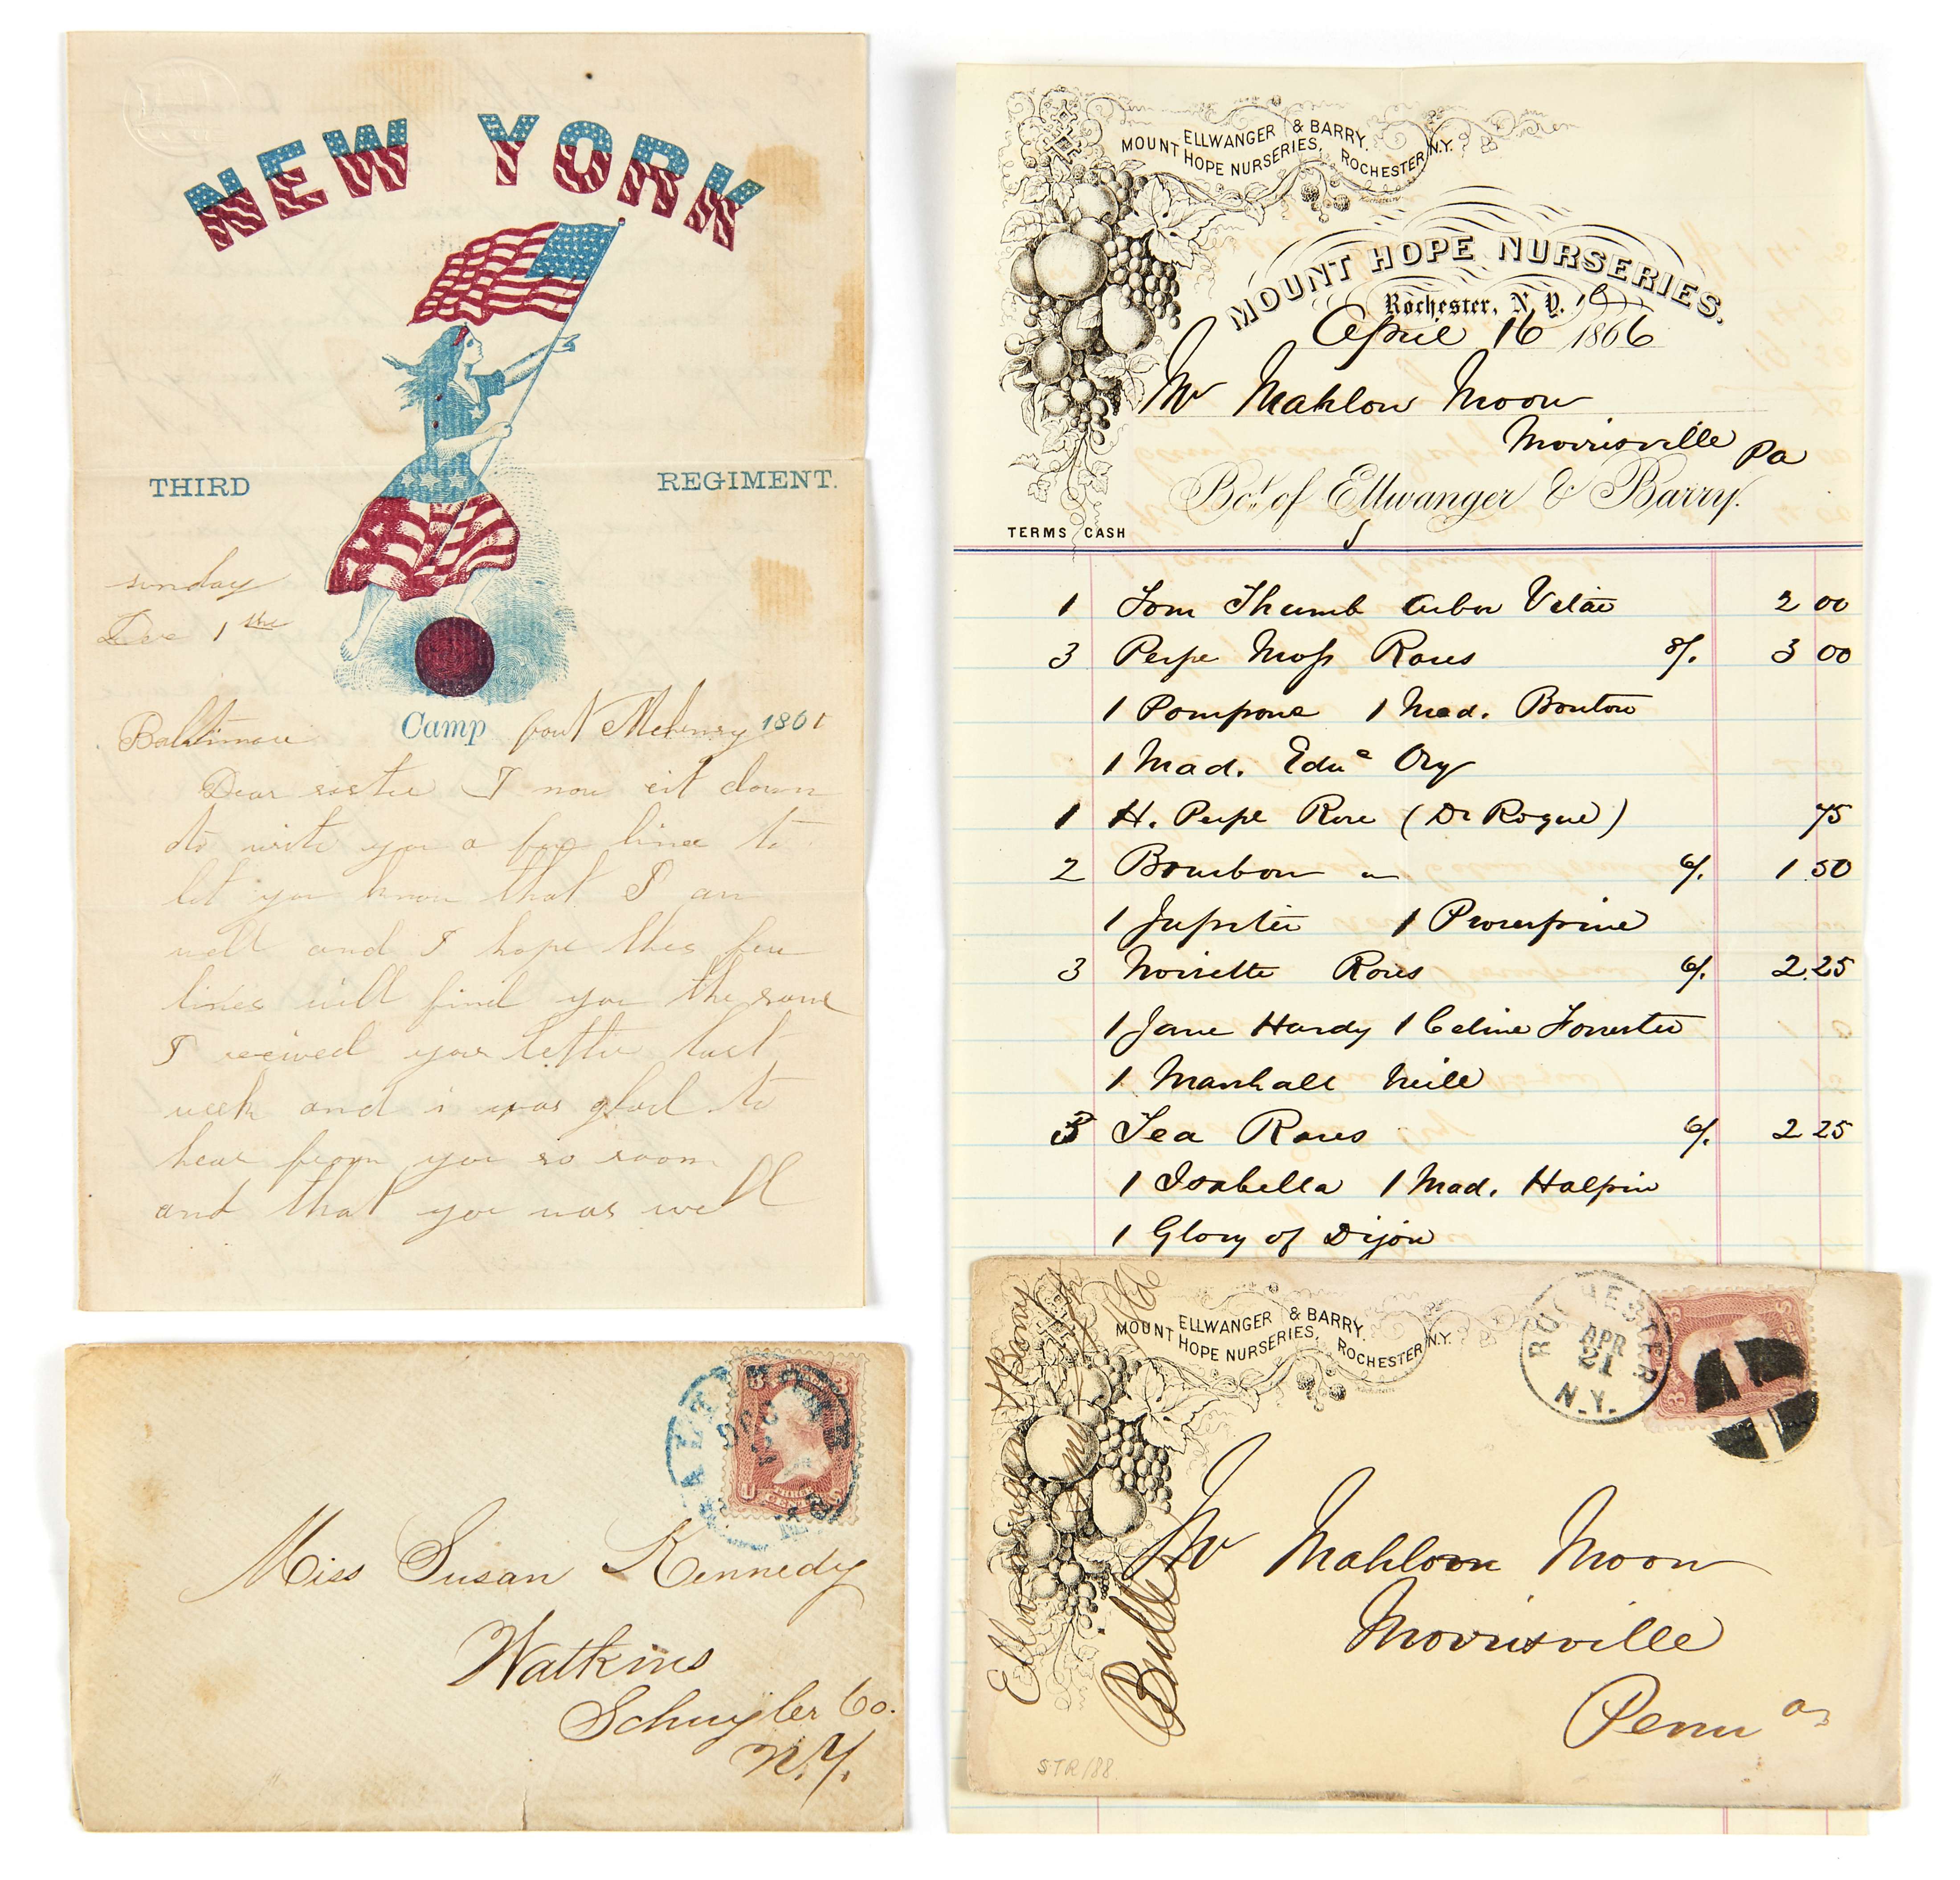 NEW YORK
THIRD REGIMENT.
sunday
Dec 1 the
Baltimore Camp fort Mchenry 1861
Dear sister I now sit down
to write you a few lines to
let you know that I am
well and I hope thes few
lines will find you the same
I reeived your letter last
week and i was glad to
hear from you so soon
and that you was well
3 3
U S
THREE CENTS
DEC
Miss Susan Kennedy
Watkins
Schuyler Co.
N.Y.
ELLWANGER & BARRY.
MOUNT HOPE NURSERIES, ROCHESTER, N.Y.
MOUNT HOPE NURSERIES.
Rochester, N.Y.
April 16 1866
Mr Mahlon Moon
Morrisville Pa
Bot. of Ellwanger & Barry.
TERMS CASH
1 Tom Thumb Arbor Vitae 2 00
3 Perpe Moss Roses 8/. 3 00
1 Pompone 1 Mad. Bouton
1 Mad. Edue Ory
1 H. Perpe Rose (Dr Rogue) 75
2 Bourbon 6/. 1 50
1 Jupiter 1 Proserpine
3 Noisette Roses 6/. 2.25
1 Jane Hardy 1 Celine Forrester
1 Marshall Neile
3 Tea Roses 6/. 2 25
1 Isabella 1 Mad. Halpin
1 Glory of Dijon
ELLWANGER & BARRY.
MOUNT HOPE NURSERIES, ROCHESTER N.Y.
ROCHESTER
APR
21
N.Y.
Ellwanger & Barry
Bill
Mr Mahloon Moon
Morrisville
Penn a
STR/88